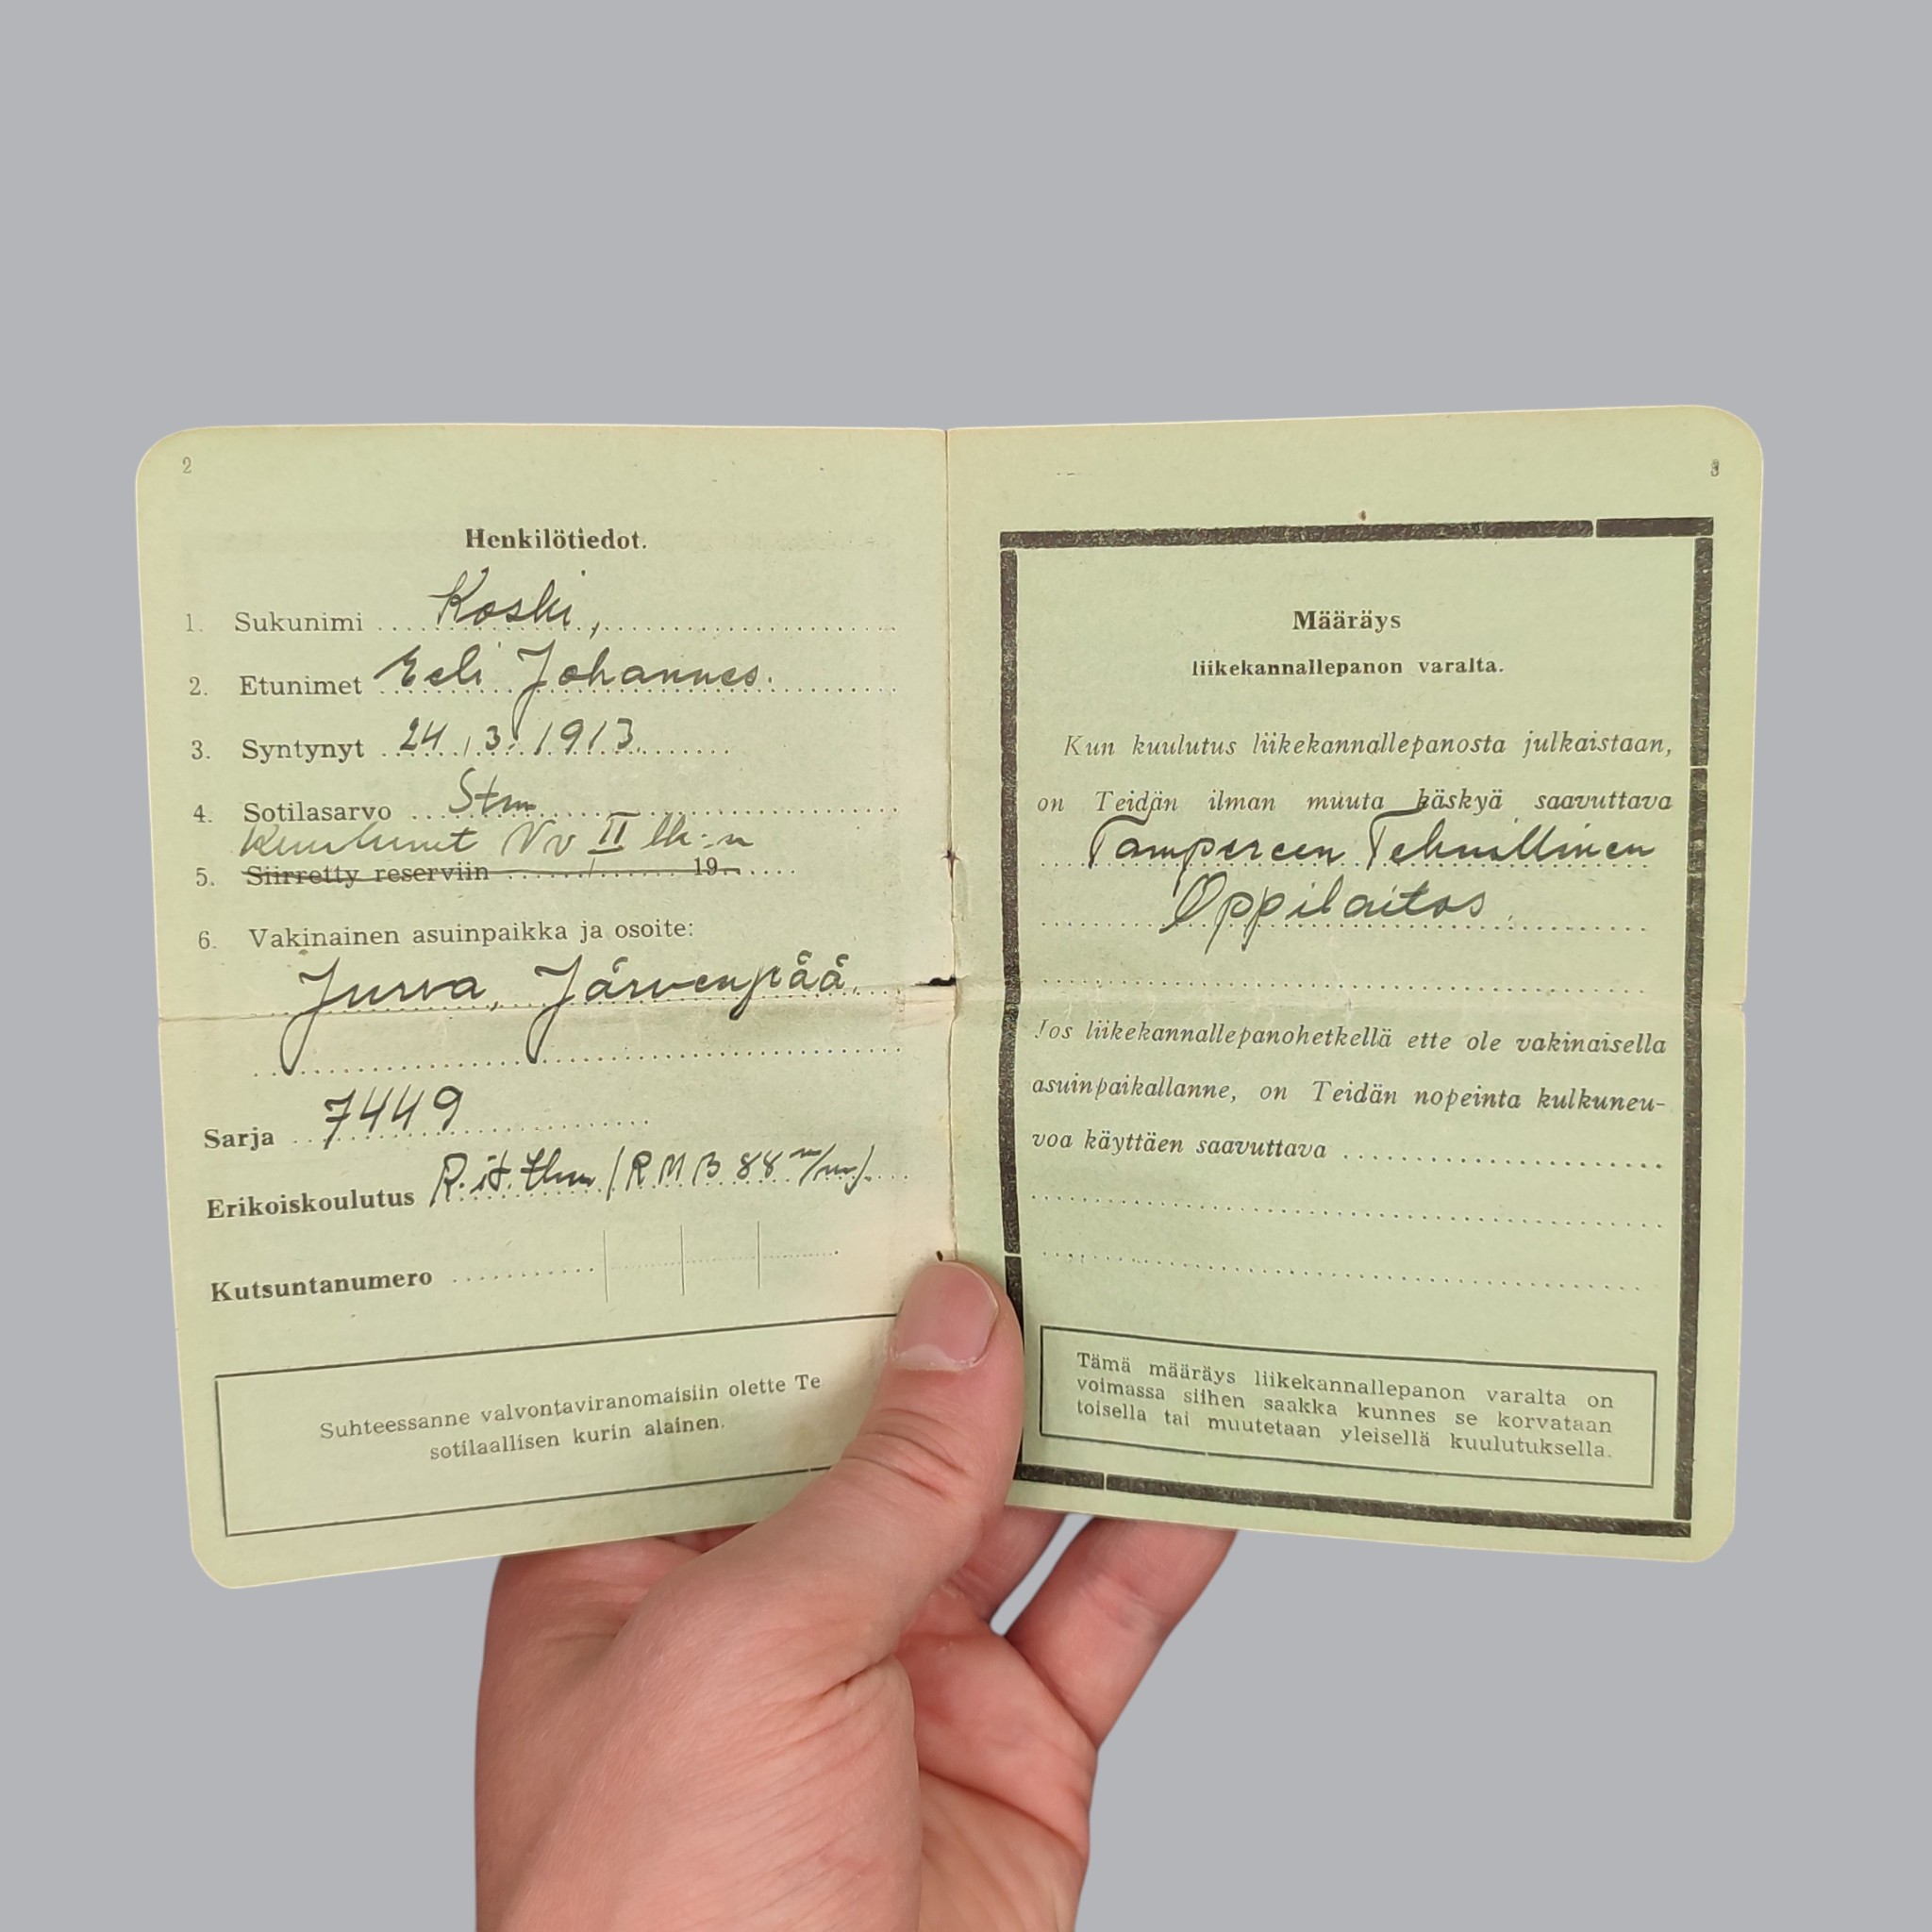 2
Henkilötiedot.
1. Sukunimi Koski,
2. Etunimet Eeli Johannes.
3. Syntynyt 24.3.1913.
4. Sotilasarvo Stm
Kuulunut Nv II lk:n
5. Siirretty reserviin / 19
6. Vakinainen asuinpaikka ja osoite:
Jurva, Järvenpää.
Sarja 7449
Erikoiskoulutus (RMB 88 m/m).
Kutsuntanumero
Suhteessanne valvontaviranomaisiin olette Te
sotilaallisen kurin alainen.
3
Määräys
liikekannallepanon varalta.
Kun kuulutus liikekannallepanosta julkaistaan,
on Teidän ilman muuta käskyä saavuttava
Tampereen Teknillinen
Oppilaitos
Jos liikekannallepanohetkellä ette ole vakinaisella
asuinpaikallanne, on Teidän nopeinta kulkuneu-
voa käyttäen saavuttava
Tämä määräys liikekannallepanon varalta on
voimassa siihen saakka kunnes se korvataan
toisella tai muutetaan yleisellä kuulutuksella.